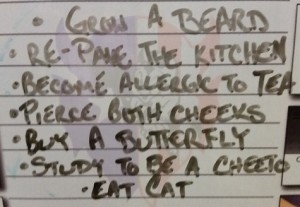 • GROW A BEARD
• RE-PAVE THE KITCHEN
• BECOME ALLERGIC TO TEA
• PIERCE BOTH CHEEKS
• BUY A BUTTERFLY
• STUDY TO BE A CHEETO
• EAT CAT